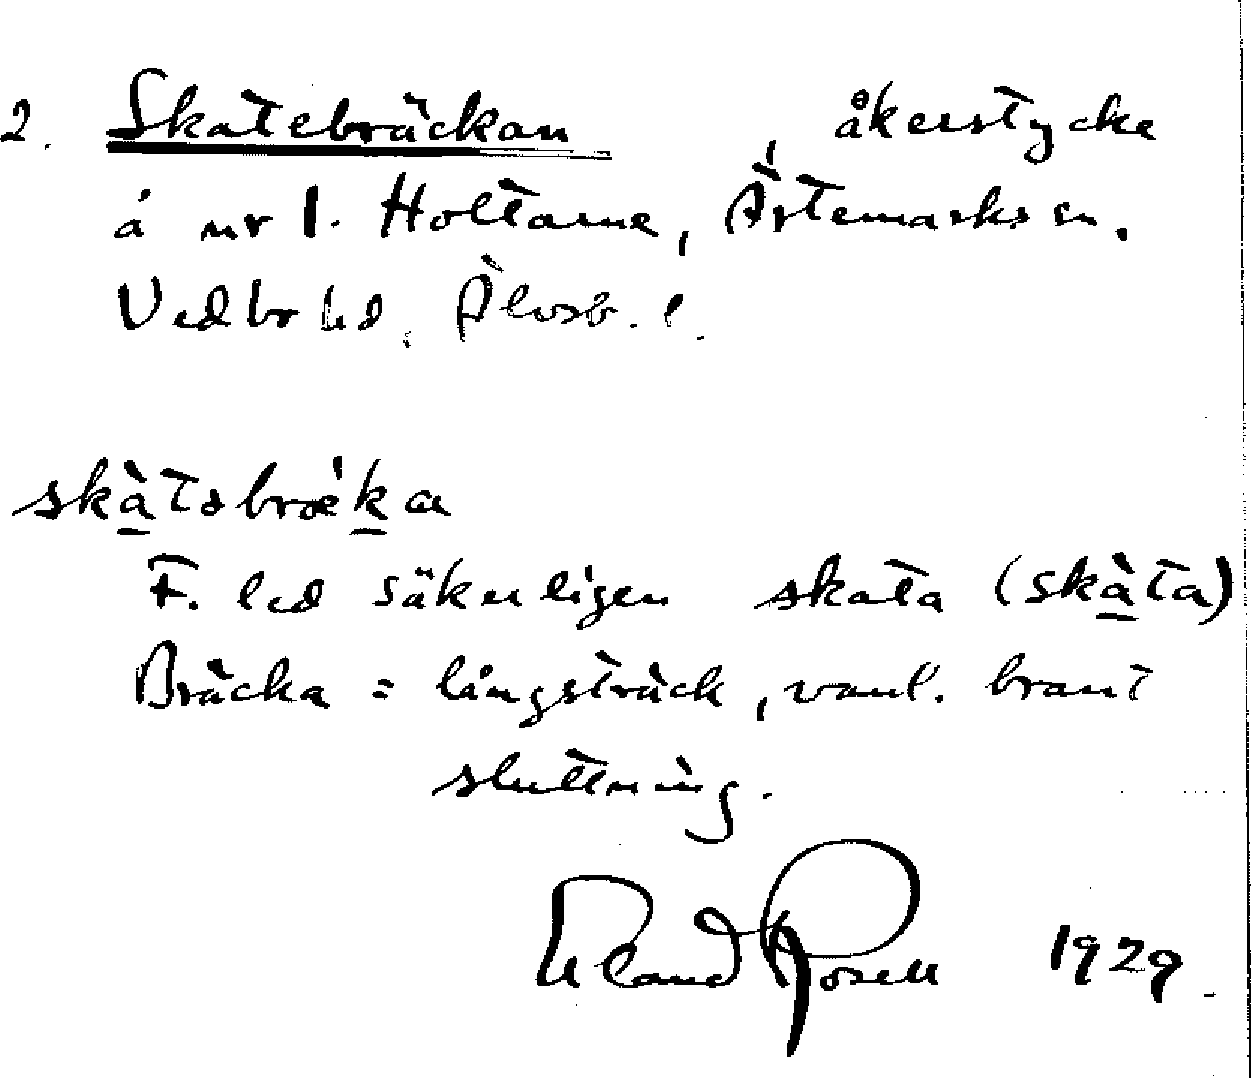 2. Skatebräckan, åkerstycke
å nr 1. Holtarne, Ärtemarks sn.
Vedbo hd. Älvsb. l.
skàtəbræka
F. led säkerligen skata (skàta)
Bräcka = långsträck, vanl. brant
sluttning.
Erland Rosell 1929